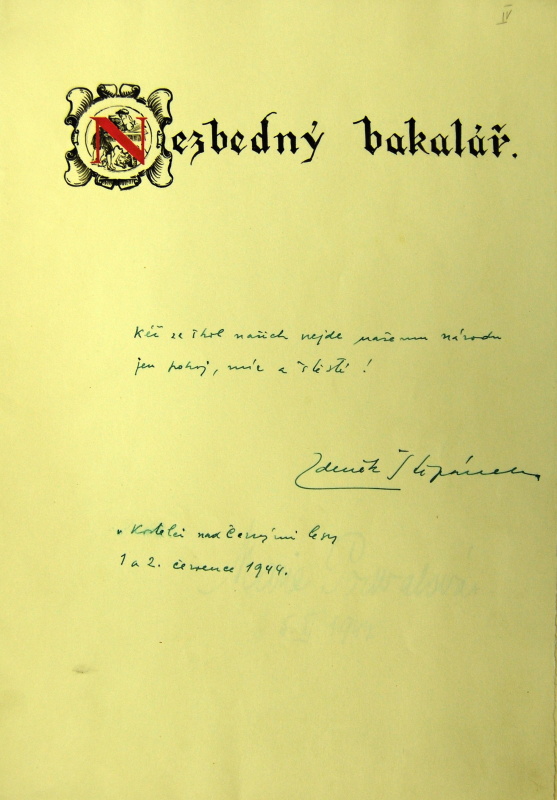 IV
Nezbedný bakalář.
Kéž ze škol našich vejde našemu národu
jen pokoj, mír a štěstí!
Zdeněk Štěpánek
v Kostelci nad Černými lesy
1 a 2. července 1944.